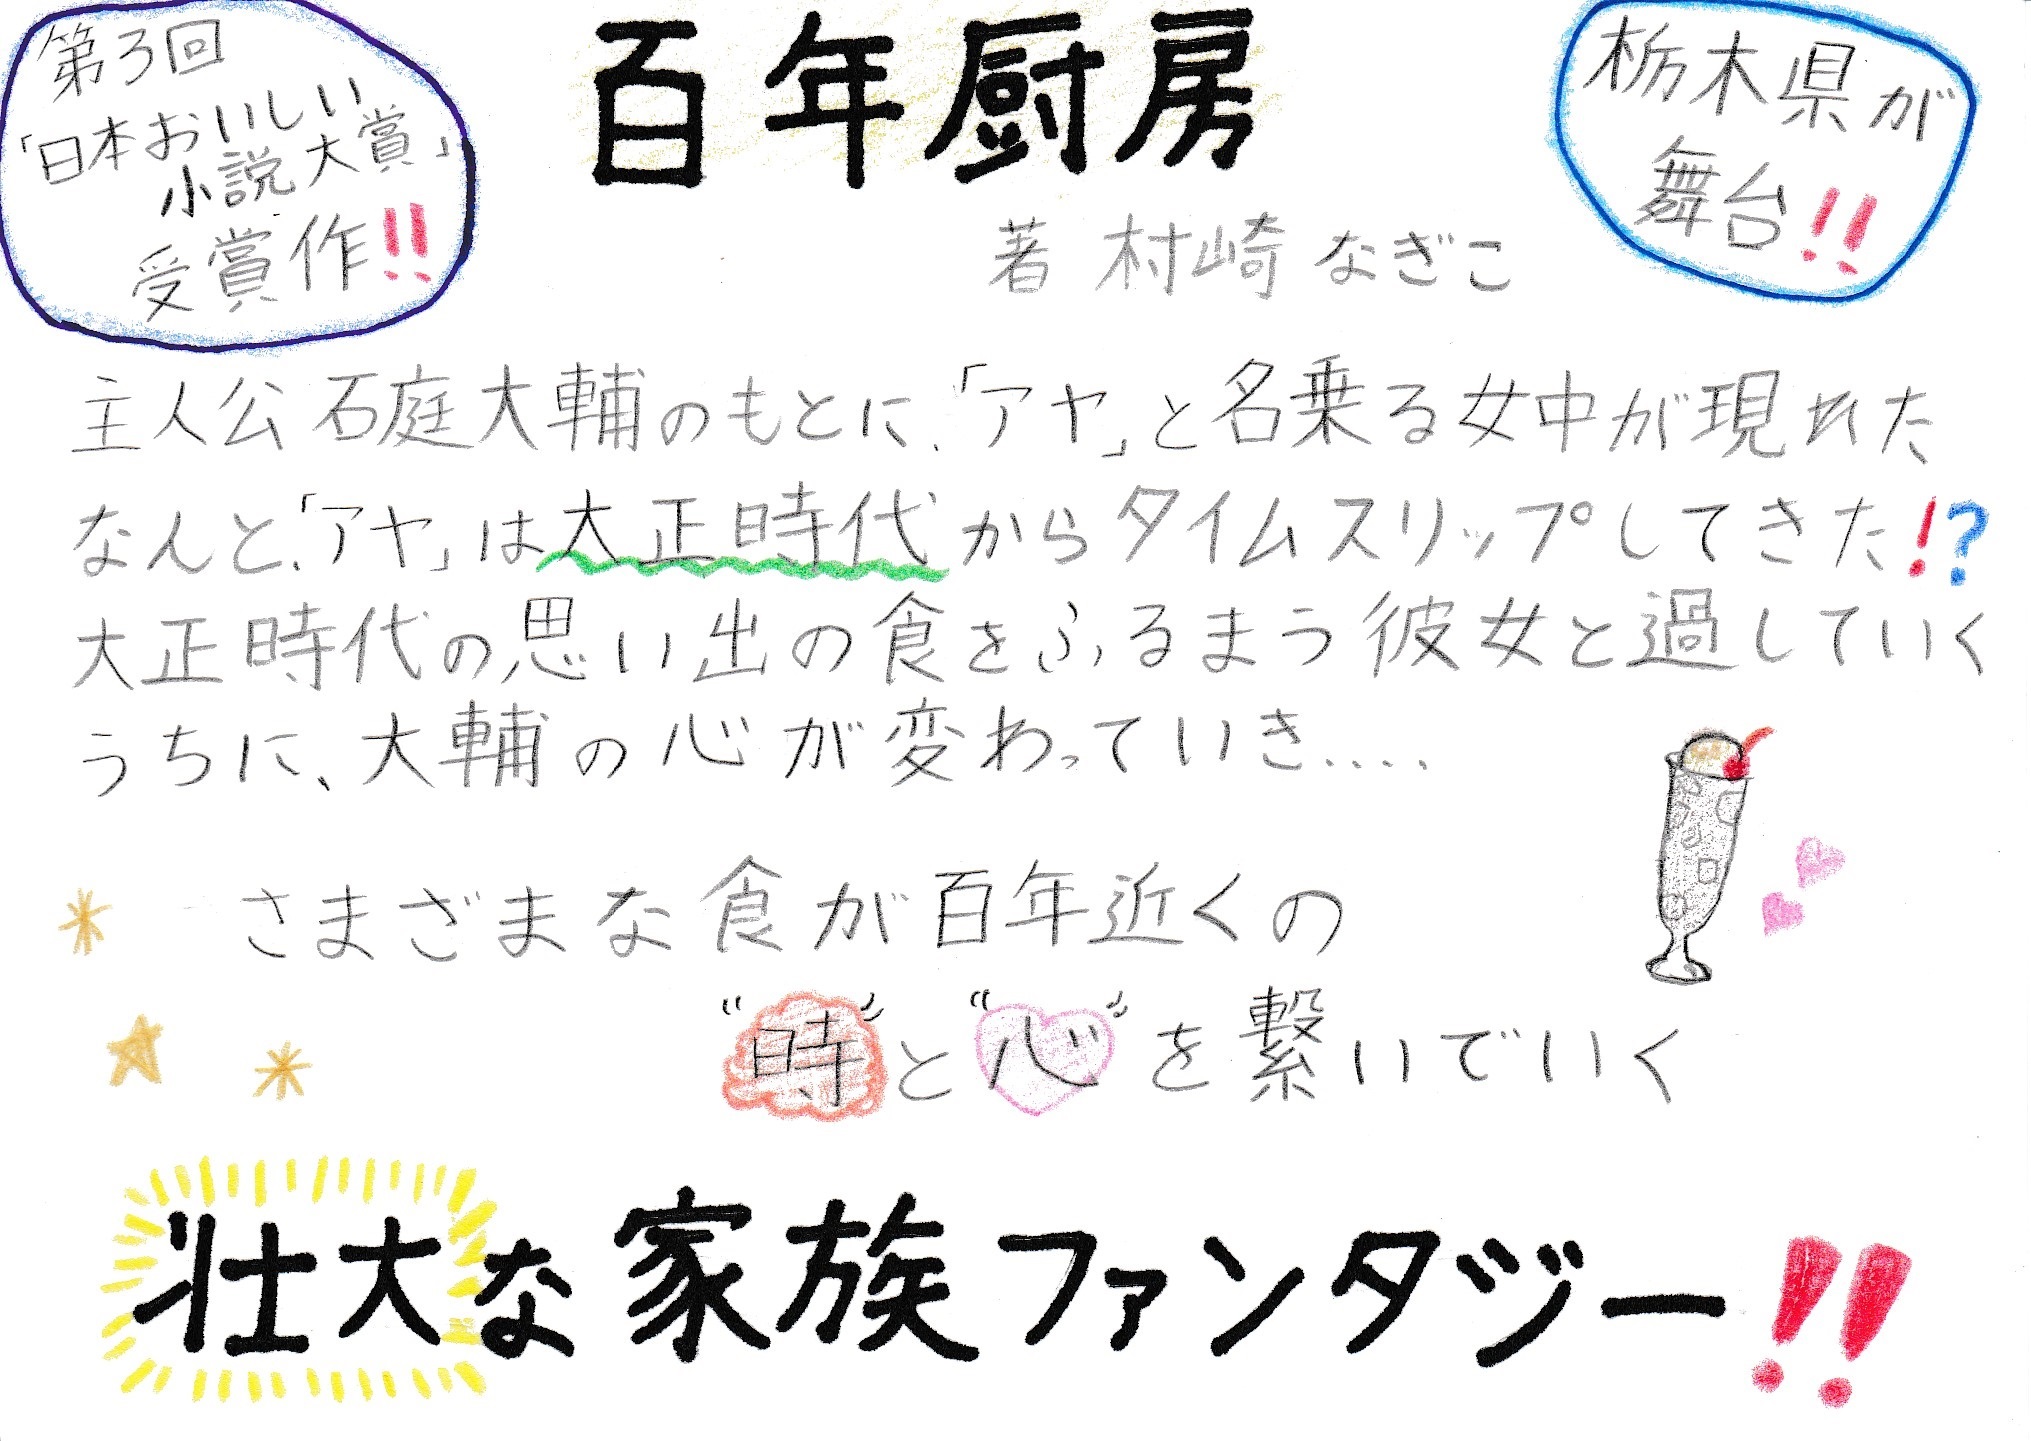 第3回
「日本おいしい
小説大賞」
受賞作!!
百年厨房
栃木県が
舞台!!
著 村崎なぎこ
主人公石庭大輔のもとに、「アヤ」と名乗る女中が現れた
なんと、「アヤ」は大正時代からタイムスリップしてきた!?
大正時代の思い出の食をふるまう彼女と過していく
うちに、大輔の心が変わっていき....
さまざまな食が百年近くの
“時”と“心”を繋いでいく
壮大な家族ファンタジー!!